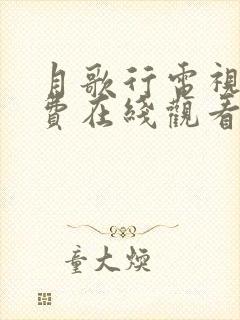 月歌行電視
費在綫觀看
童大煥